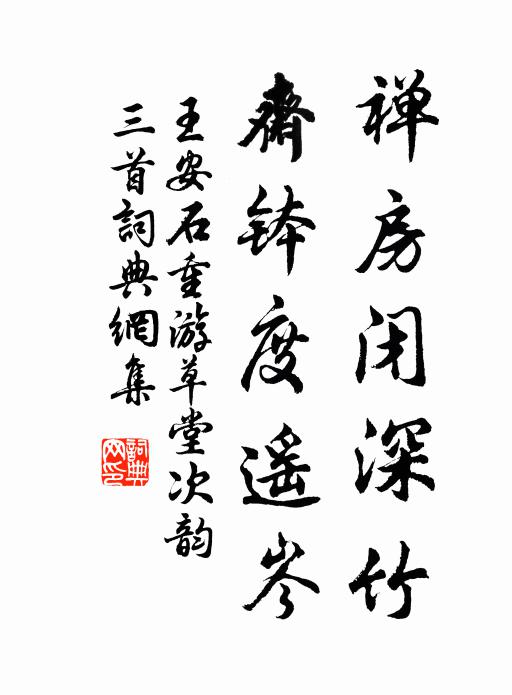 禅房闭深竹
齋钵度遥岑
王安石重游草堂次韵
三首詞典網集
詞典网印